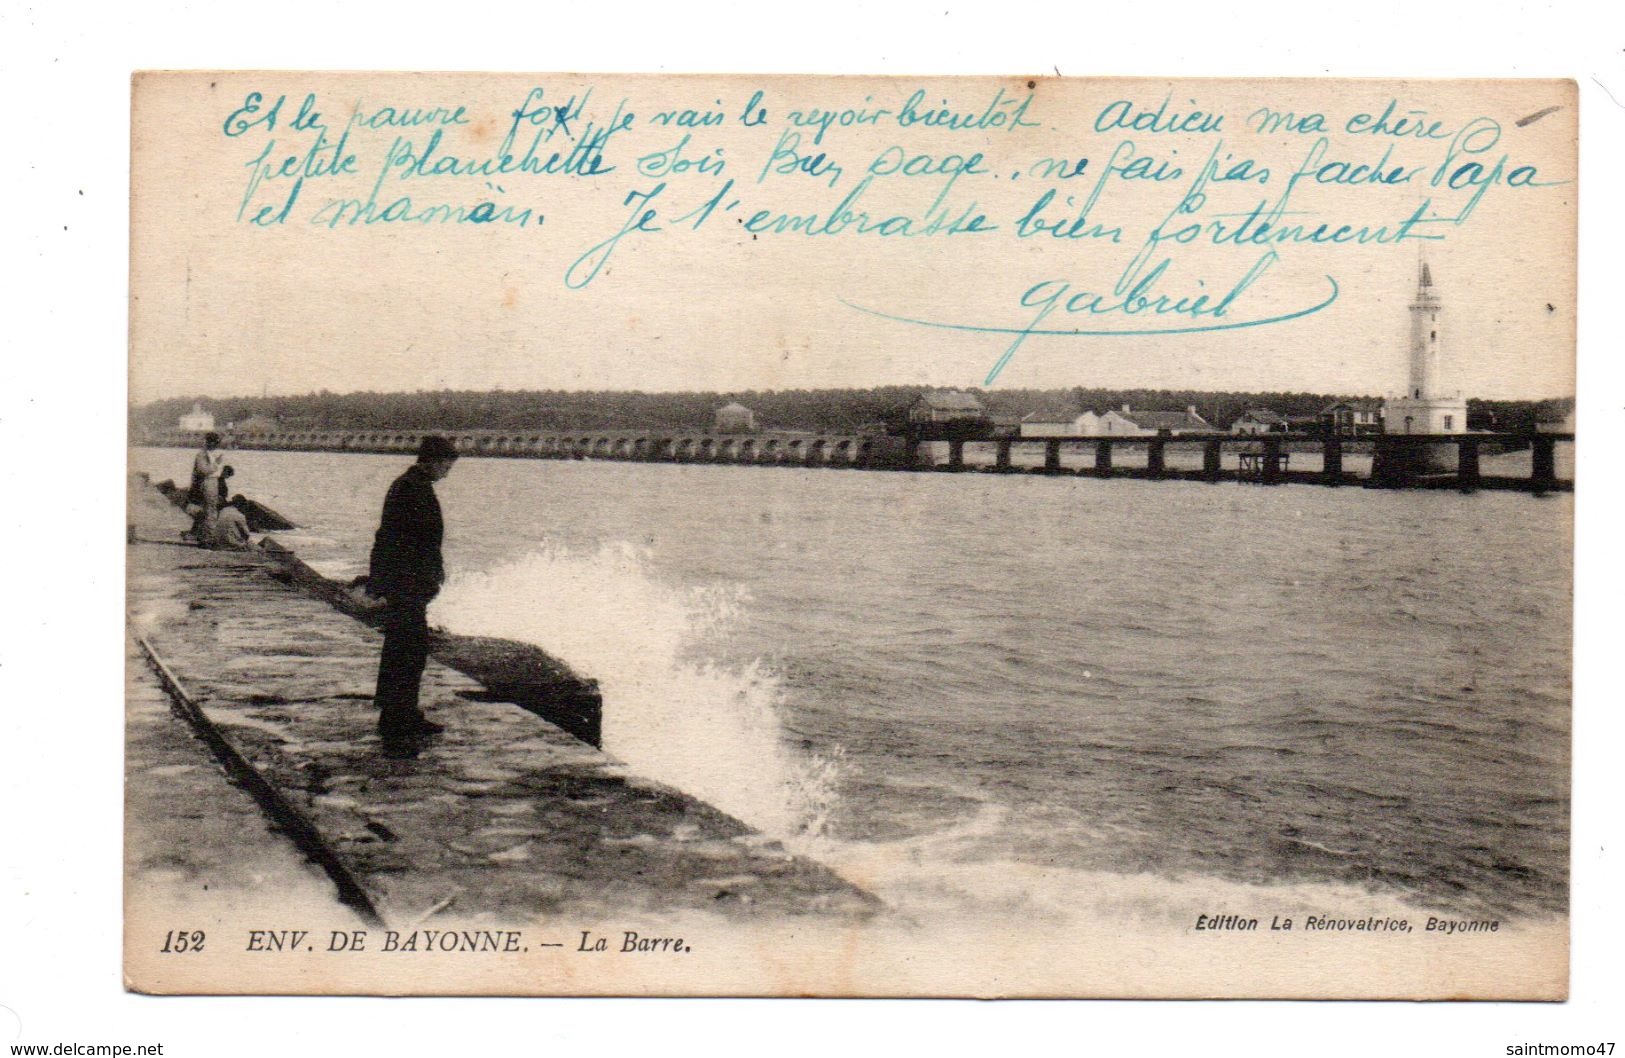 Et le pauvre fox, je vais le revoir bientôt. Adieu ma chère
petite Blanchette sois Bien sage., ne fais pas facher Papa
et maman. Je t'embrasse bien fortement
Gabriel
152 ENV. DE BAYONNE. — La Barre.
Edition La Rénovatrice, Bayonne
www.delcampe.net
saintmomo47